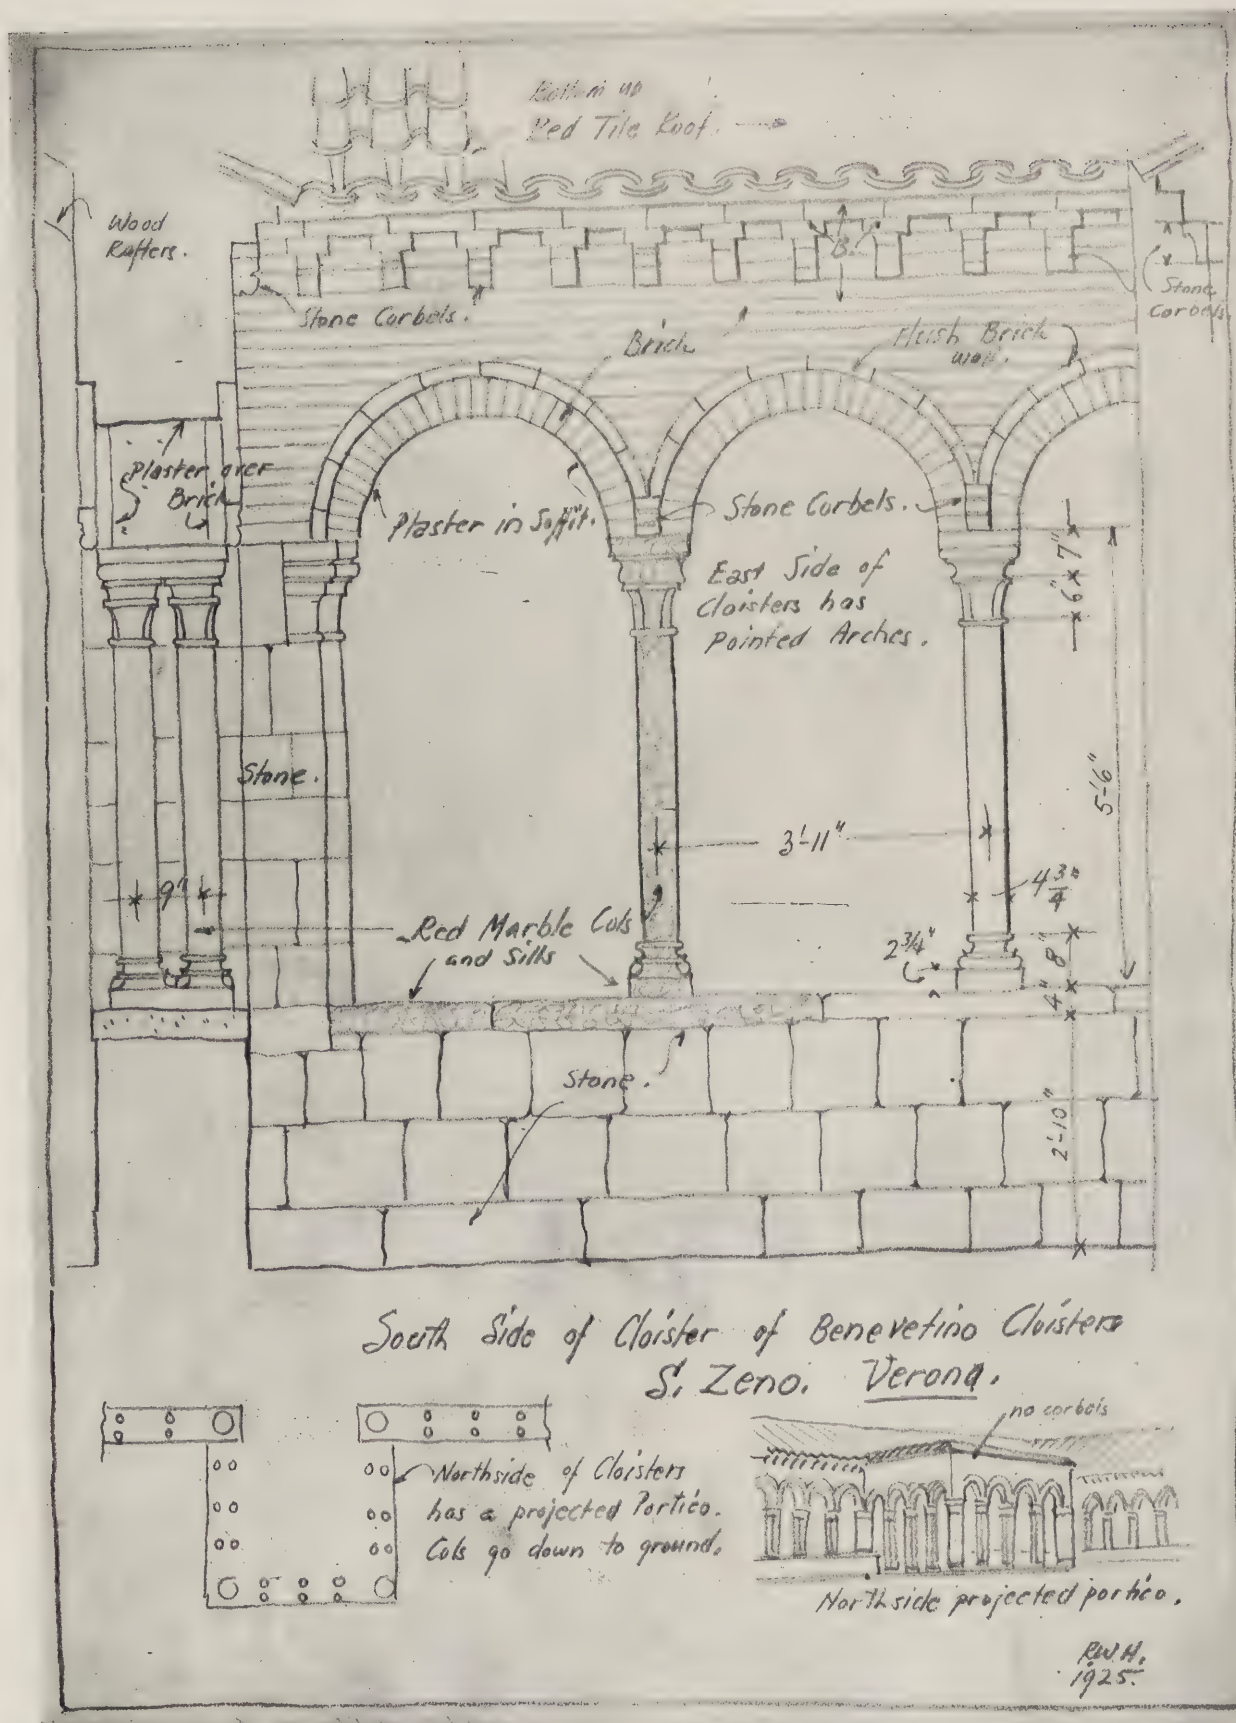 Bottom up
Red Tile Roof.
Wood
Rafters.
Stone Corbels.
B.
Stone
Corbels
Brick
Flush Brick
Wall.
Plaster over
Brick
Plaster in Soffit.
Stone Corbels.
East Side of
Cloisters has
Pointed Arches.
7"
6"
5'-6"
Stone.
3'-11"
9"
4 3/4"
Red Marble Cols
and Sills
2 3/4"
8"
4"
Stone.
2'-10"
South Side of Cloister of Benevetino Cloisters
S. Zeno. Verona.
no corbels
Northside of Cloisters
has a projected Portico.
Cols go down to ground.
Northside projected portico.
R.W.H.
1925.